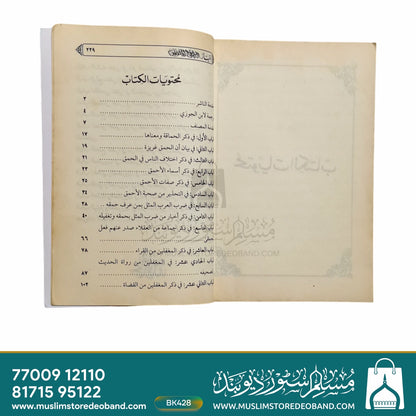 ٢٢٩
محتويات الكتاب
الناشر ٣
لابن الجوزي ٤
المصنف ٧
الأول: في ذكر الحماقة ومعناها ١٧
الثاني: في بيان أن الحمق غريزة ١٩
الثالث: في ذكر اختلاف الناس في الحمق ٢١
الرابع: في ذكر أسماء الأحمق
الخامس: في ذكر صفات الأحمق ٢٥
السادس: في التحذير من صحبة الأحمق ٣٥
السابع: في ضرب العرب المثل بمن عرف حمقه
الثامن: في ذكر أخبار من ضرب المثل بحمقه وتغفيله ٤٠
التاسع: في ذكر جماعة من العقلاء صدر عنهم فعل
٦٦
العاشر: في ذكر المغفلين من القراء ٧٨
الحادي عشر: في المغفلين من رواة الحديث
٨٧
الثاني عشر: في ذكر المغفلين من القضاة ١٠٢
محتويات الكتاب
مسلم سٹور دیوبند
WWW.MUSLIMSTOREDEOBAND.COM
77009 12110
81715 95122
www.muslimstoredeoband.com
BK428
مسلم سٹور دیوبند
WWW.MUSLIMSTOREDEOBAND.COM